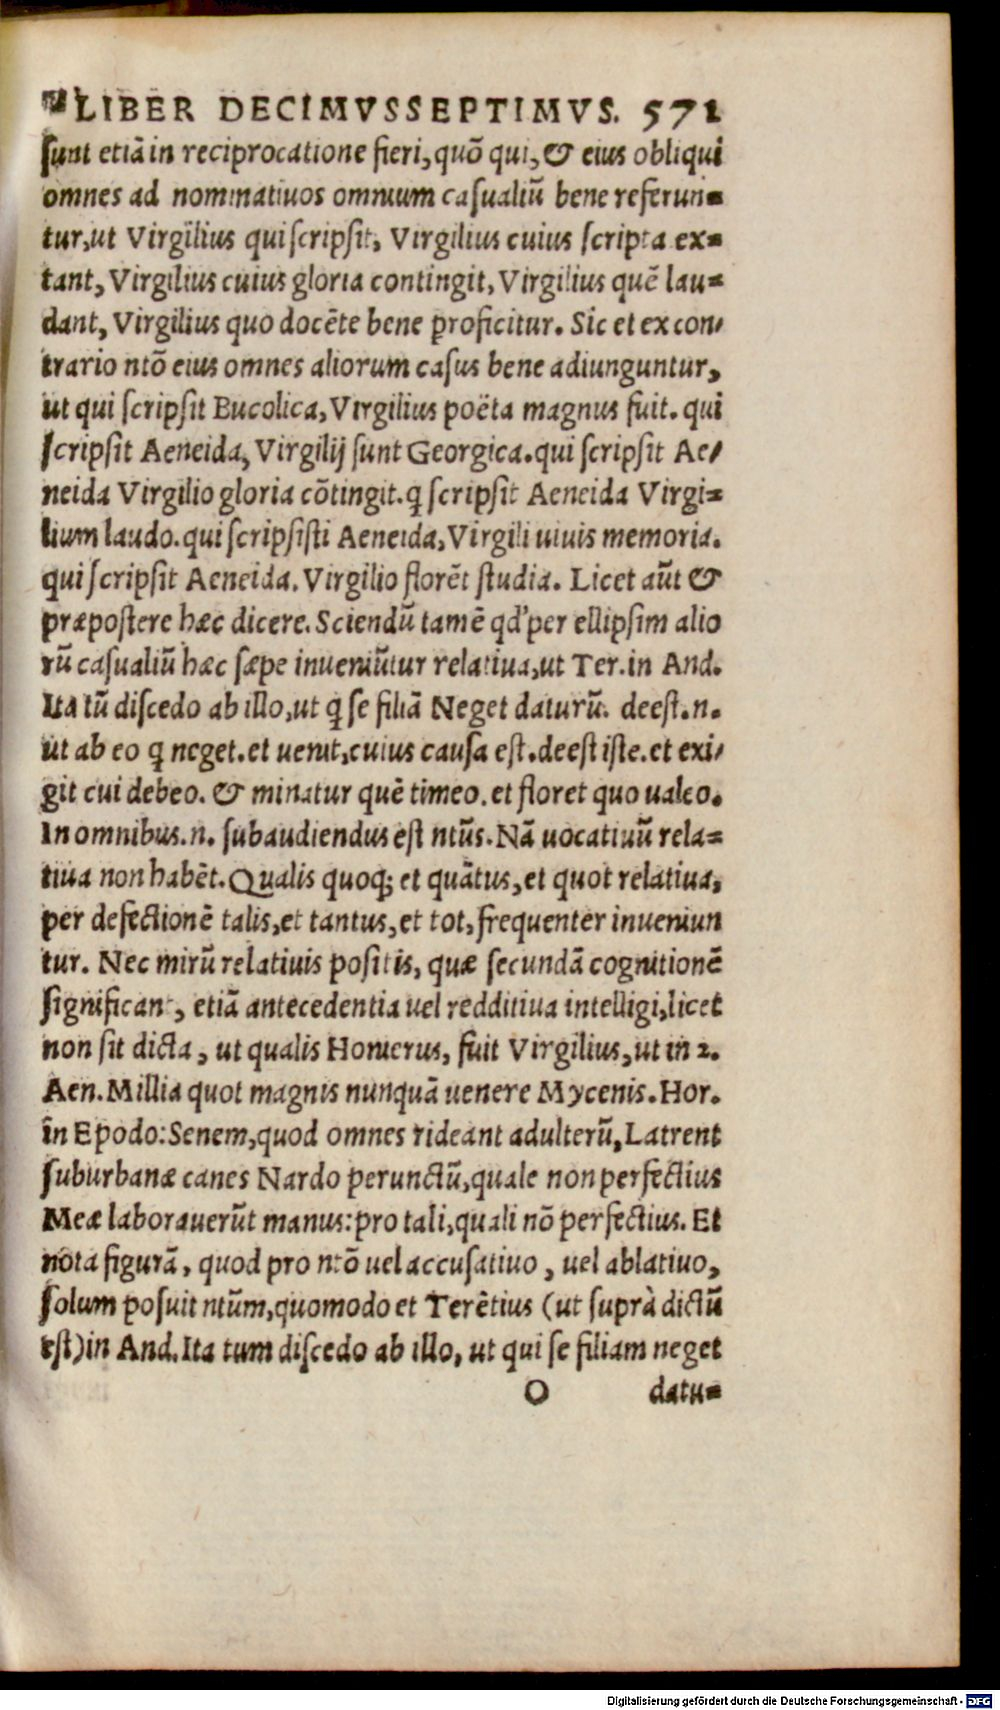 LIBER DECIMVSSEPTIMVS. 571
sunt etiā in reciprocatione fieri, quō qui, & eius obliqui
omnes ad nominatiuos omnium casualiū bene referun-
tur, ut Virgilius qui scripsit, Virgilius cuius scripta ex-
tant, Virgilius cuius gloria contingit, Virgilius quē lau-
dant, Virgilius quo docēte bene proficitur. Sic et ex con/
trario ntō eius omnes aliorum casus bene adiunguntur,
ut qui scripsit Bucolica, Virgilius poëta magnus fuit. qui
scripsit Aeneida, Virgilij sunt Georgica. qui scripsit Ae/
neida Virgilio gloria cōtingit. q scripsit Aeneida Virgi-
lium laudo. qui scripsisti Aeneida, Virgili uiuis memoria.
qui scripsit Aeneida. Virgilio florēt studia. Licet aūt &
præpostere hæc dicere. Sciendū tamē qd' per ellipsim alio
rū casualiū hæc sæpe inueniūtur relatiua, ut Ter. in And.
Ita tū discedo ab illo, ut q se filiā Neget daturū. deest. n.
ut ab eo q neget. et uenit, cuius causa est. deest iste. et exi/
git cui debeo. & minatur quē timeo. et floret quo ualeo.
In omnibus. n. subaudiendus est ntūs. Nā uocatiuū rela-
tiua non habēt. Qualis quoq; et quātus, et quot relatiua,
per defectionē talis, et tantus, et tot, frequenter inueniun
tur. Nec mirū relatiuis positis, quæ secundā cognitionē
significant, etiā antecedentia uel redditiua intelligi, licet
non sit dicta, ut qualis Homerus, fuit Virgilius, ut in 2.
Aen. Millia quot magnis nunquā uenere Mycenis. Hor.
in Epodo: Senem, quod omnes rideant adulterū, Latrent
suburbanæ canes Nardo perunctū, quale non perfectius
Meæ laborauerūt manus: pro tali, quali nō perfectius. Et
nota figurā, quod pro ntō uel accusatiuo, uel ablatiuo,
solum posuit ntūm, quomodo et Terētius (ut suprà dictū
est) in And. Ita tum discedo ab illo, ut qui se filiam neget
O datu-
Digitalisierung gefördert durch die Deutsche Forschungsgemeinschaft - DFG